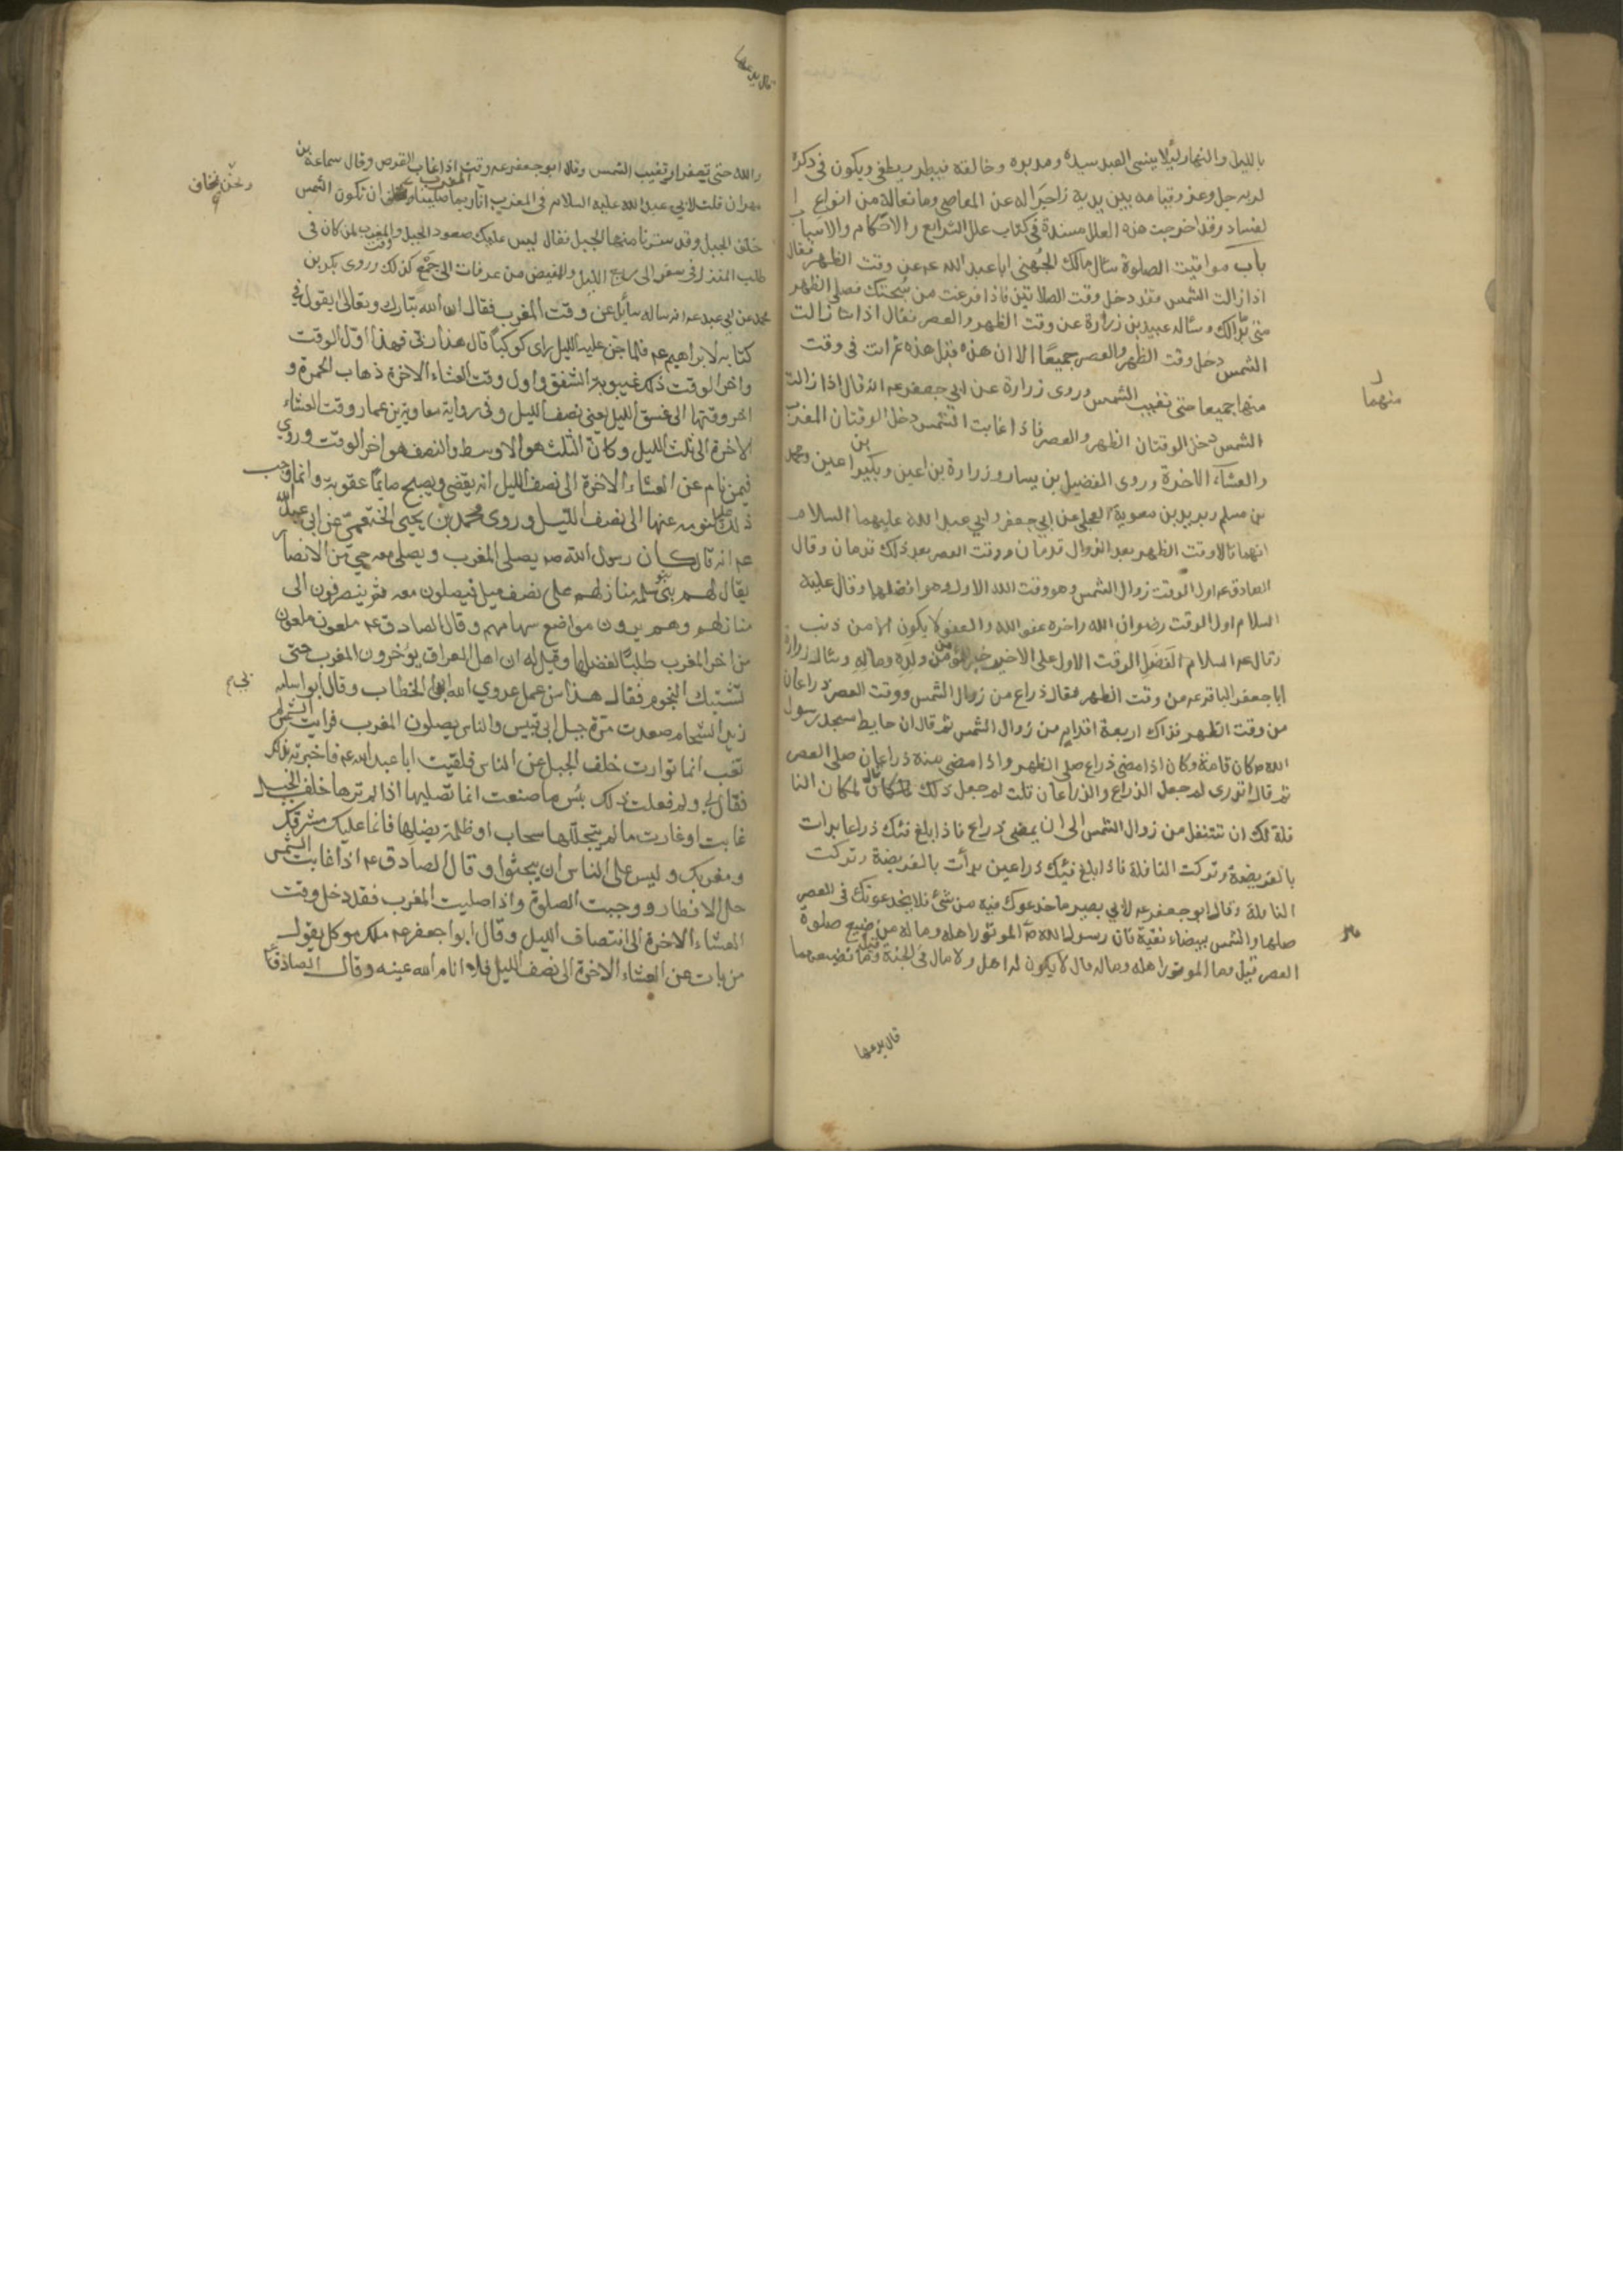 بالليل والنهار لئلا ينسى العبد سيده ومدبره وخالقه فيبطر ويطغى ويكون في ذكره
لربه جل وعز وقيامه بين يديه زاجرا له عن المعاصي ومانعا له من انواع
الفساد وقد اخرجت هذه العلل مسندة في كتاب علل الشرايع والاحكام والاسباب
باب مواقيت الصلوة سأل مالك الجهني ابا عبد الله عم عن وقت الظهر فقال
اذا زالت الشمس فقد دخل وقت الصلاتين فاذا فرغت من سبحتك فصلى الظهر
متى بدا لك وسأله عبيد بن زرارة عن وقت الظهر والعصر فقال اذا زالت
الشمس دخل وقت الظهر والعصر جميعا الا ان هذه قبل هذه ثم انت في وقت
منها جميعا حتى تغيب الشمس وروى زرارة عن ابي جعفر عم انه قال اذا زالت
منهما
الشمس دخل الوقتان الظهر والعصر فاذا غابت الشمس دخل الوقتان المغرب
والعشاء الاخرة وروى الفضيل بن يسار وزرارة بن اعين وبكير بن اعين ومحمد
بن مسلم وبريد بن معوية العجلي عن ابي جعفر وابي عبد الله عليهما السلام
انهما قالا وقت الظهر بعد الزوال قدمان ووقت العصر بعد ذلك قدمان وقال
الصادق عم اول الوقت زوال الشمس وهو وقت الله الاول وهو افضلها وقال عليه
السلام اول الوقت رضوان الله واخره عفو الله والعفو لا يكون الا من ذنب
وقال عم السلام الفضل الوقت الاول على الاخير خير للمؤمن من ولده وماله وسأله زرارة
ابا جعفر الباقر عم عن وقت الظهر فقال ذراع من زوال الشمس ووقت العصر ذراعان
من وقت الظهر فذاك اربعة اقدام من زوال الشمس ثم قال ان حايط مسجد رسول
الله ص كان قامة وكان اذا مضى ذراع صلى الظهر واذا مضى منه ذراعان صلى العصر
ثم قال اتدرى لم جعل الذراع والذراعان قلت لم جعل ذلك قال لمكان النا
فلة لك ان تتنفل من زوال الشمس الى ان يمضى ذراع فاذا بلغ فيئك ذراعا بدات
بالفريضة وتركت النافلة فاذا بلغ فيئك ذراعين بدأت بالفريضة وتركت
النافلة وقال ابو جعفر عم لابي بصير ما خدعوك فيه من شئ فلا يخدعونك في العصر
صلها والشمس بيضاء نقية فان رسول الله ص قال الموتور اهله وماله من ضيع صلوة
العصر قيل وما الموتور اهله وماله قال لا يكون له اهل ولا مال في الجنة قيل وما تضييعها
قال يدعها
والله حتى تصفر او تغيب الشمس وقال ابو جعفر عم وقت المغرب اذا غاب القرص وقال سماعة بن
مهران قلت لابي عبد الله عليه السلام في المغرب انا ربما صلينا ونحن نخاف ان تكون الشمس
ونحن نخاف
خلف الجبل وقد سترنا منها الجبل فقال ليس عليك صعود الجبل ووقت المغرب لمن كان في
طلب المنزل في سفر الى ربع الليل والمفيض من عرفات الى جمع كذلك وروى بكر بن
محمد عن ابي عبد الله عم انه ساله سايل عن وقت المغرب فقال ان الله تبارك وتعالى يقول في
كتابه لابراهيم عم فلما جن عليه الليل راى كوكبا قال هذا ربي فهذا اول الوقت
واخر الوقت ذلك غيبوبة الشفق واول وقت العشاء الاخرة ذهاب الحمرة و
اخر وقتها الى غسق الليل يعني نصف الليل وفي رواية معاوية بن عمار وقت العشاء
الاخرة الى ثلث الليل وكان الثلث هو الاوسط والنصف هو اخر الوقت وروي
فيمن نام عن العشاء الاخرة الى نصف الليل انه يقضى ويصبح صايما عقوبة وانما وجب
ذلك عليه لنومه عنها الى نصف الليل وروى محمد بن يحيى الخثعمي عن ابي عبد الله
عم انه قال كان رسول الله ص يصلى المغرب ويصلى معه حي من الانصار
يقال لهم بنو سلمه منازلهم على نصف ميل فيصلون معه ثم ينصرفون الى
منازلهم وهم يرون مواضع سهامهم وقال الصادق عم ملعون ملعون
من اخر المغرب طلبا لفضلها وقيل له ان اهل العراق يؤخرون المغرب حتى
تشتبك النجوم فقال هذا من عمل عدوي الله ابي الخطاب وقال ابو اسامه
زيد الشحام صعدت مرة جبل ابي قبيس والناس يصلون المغرب فرايت الشمس لم
تغب انما توارت خلف الجبل عن الناس فلقيت ابا عبد الله عم فاخبرته بذلك
فقال لي ولم فعلت ذلك بئس ما صنعت انما تصليها اذا لم ترها خلف الجبل
غابت او غارت ما لم يتجللها سحاب او ظلمة يضلها فانما عليك مشرقك
ومغربك وليس على الناس ان يبحثوا وقال الصادق عم اذا غابت الشمس
حل الافطار ووجبت الصلوة واذا صليت المغرب فقد دخل وقت
العشاء الاخرة الى انتصاف الليل وقال ابوا جعفر عم ملك موكل يقول
من بات عن العشاء الاخرة الى نصف الليل فلا انام الله عينه وقال الصادق عم